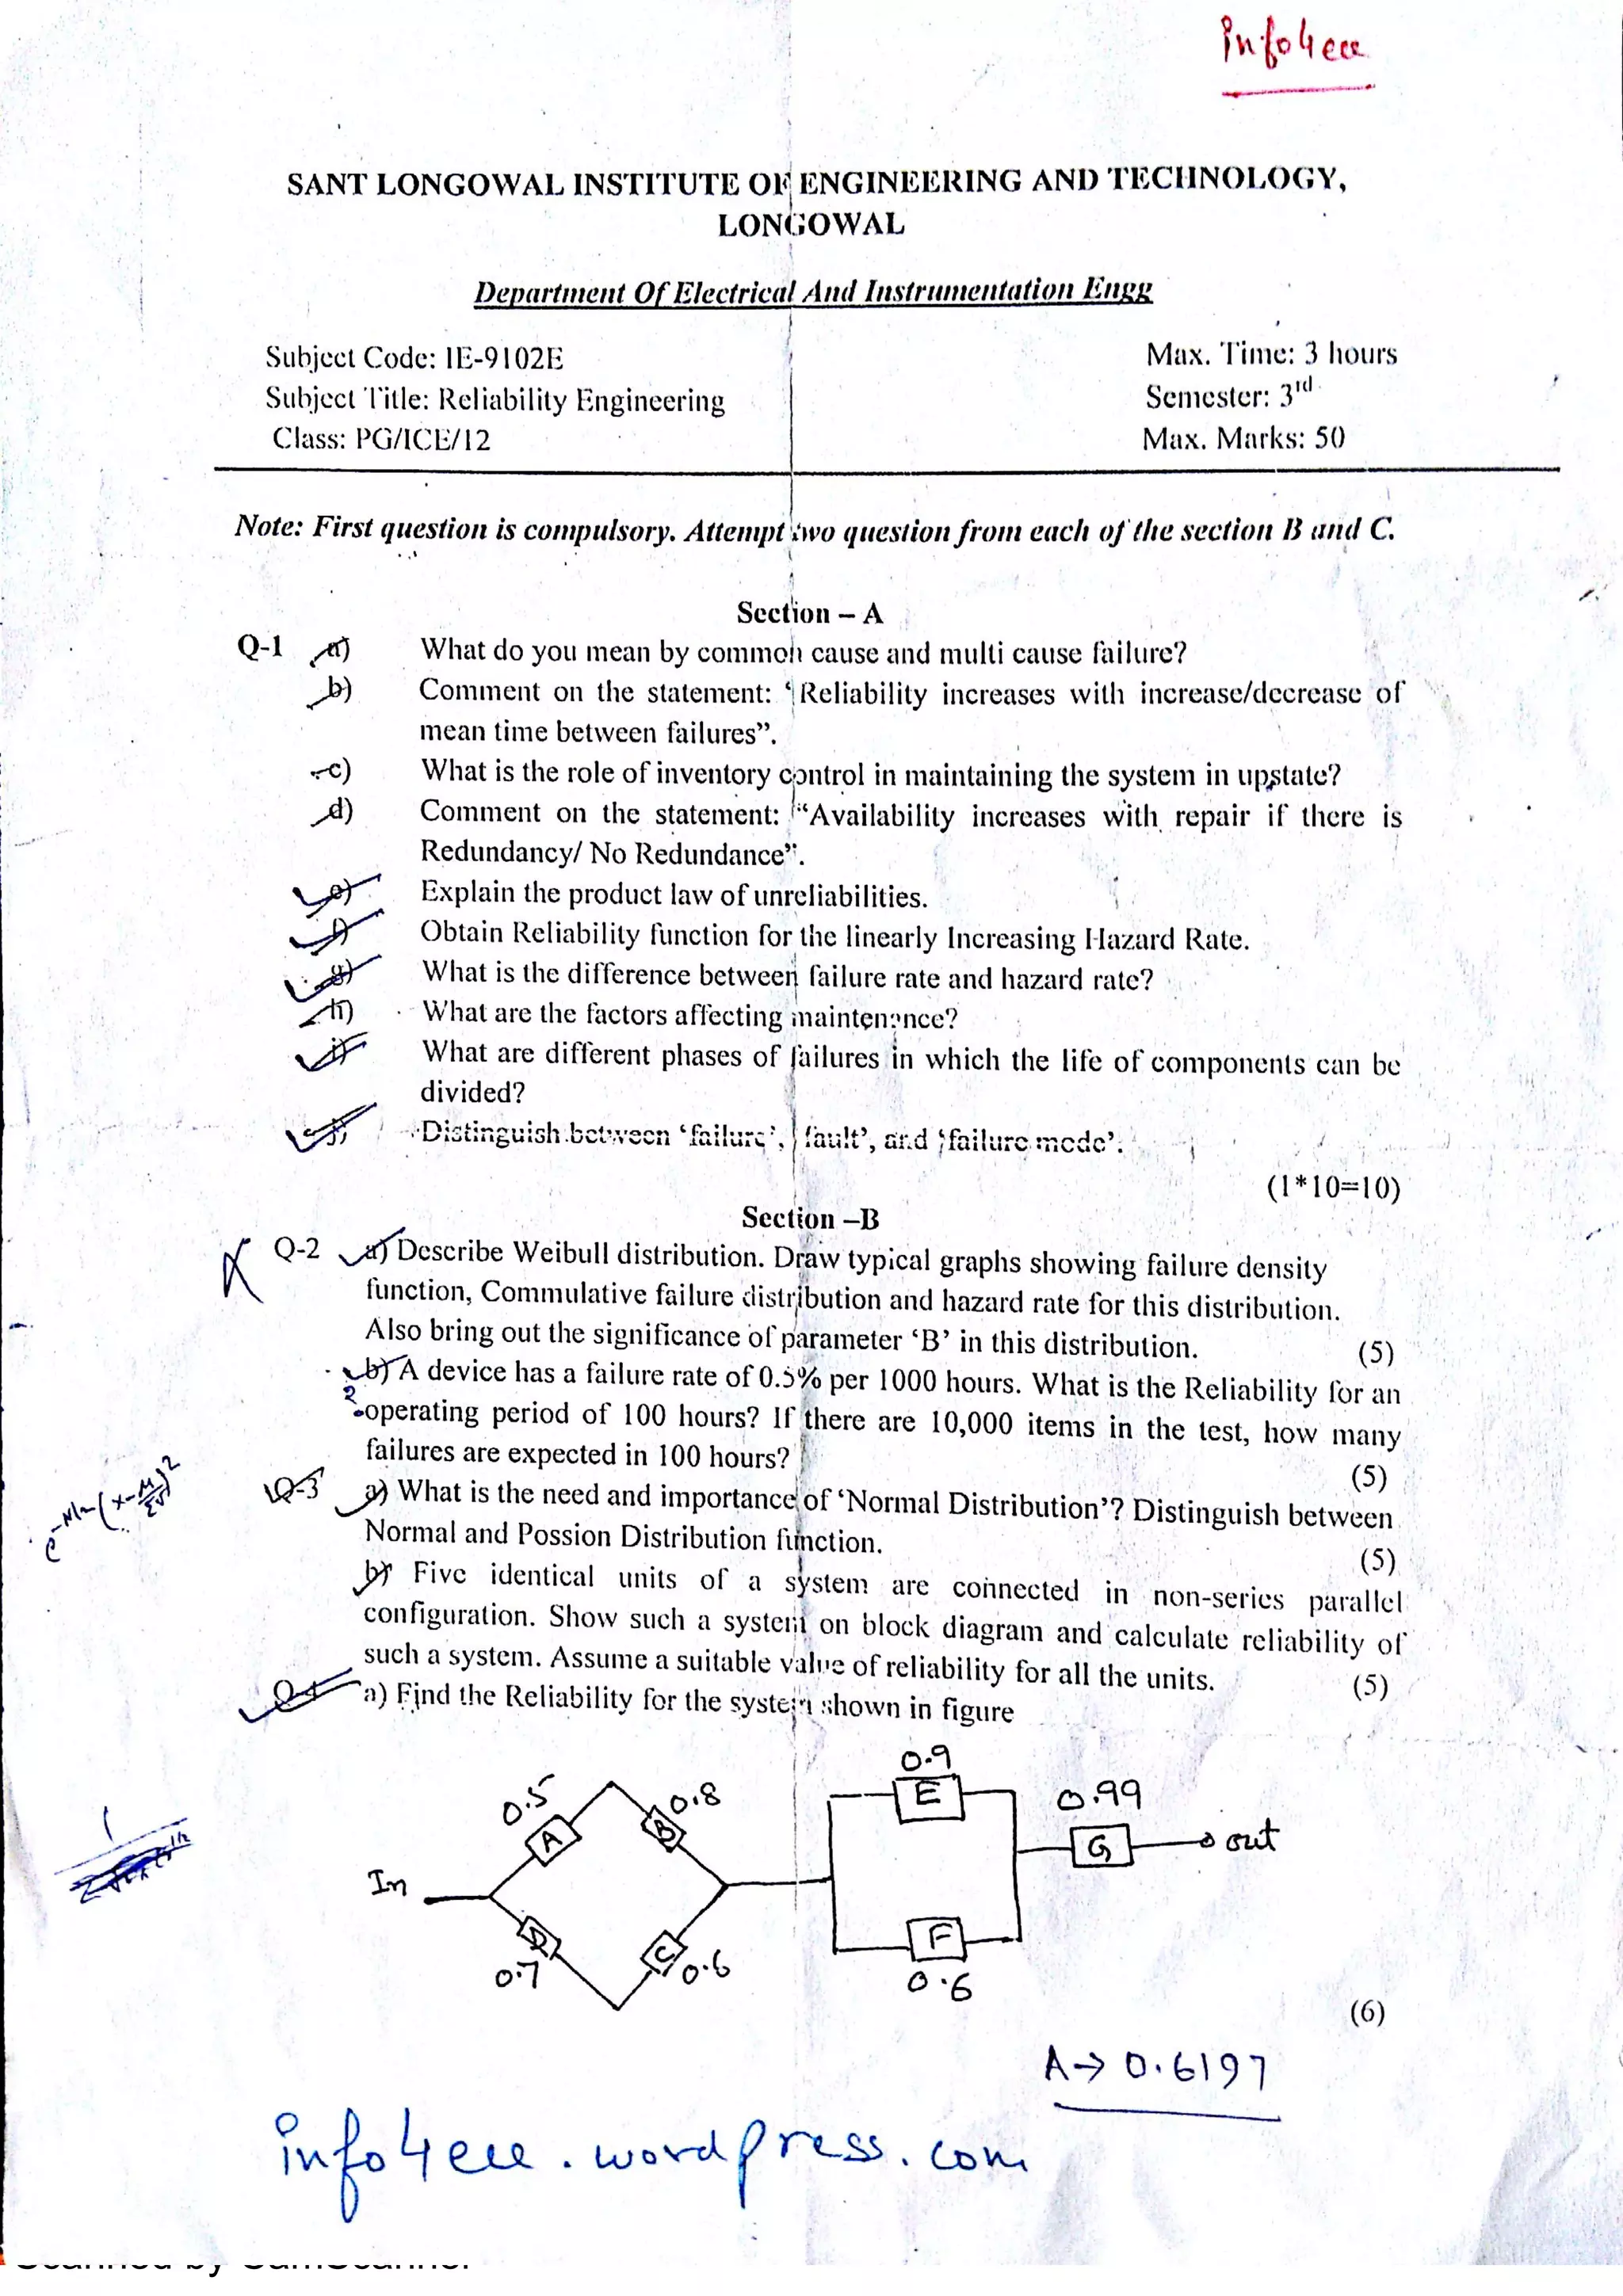 info4eee
SANT LONGOWAL INSTITUTE OF ENGINEERING AND TECHNOLOGY,
LONGOWAL
Department Of Electrical And Instrumentation Engg
Subject Code: IE-9102E
Max. Time: 3 hours
Subject Title: Reliability Engineering
Semester: 3rd
Class: PG/ICE/12
Max. Marks: 50
Note: First question is compulsory. Attempt two question from each of the section B and C.
Section – A
Q-1 a) What do you mean by common cause and multi cause failure?
b) Comment on the statement: "Reliability increases with increase/decrease of
mean time between failures".
c) What is the role of inventory control in maintaining the system in upstate?
d) Comment on the statement: "Availability increases with repair if there is
Redundancy/ No Redundance".
e) Explain the product law of unreliabilities.
f) Obtain Reliability function for the linearly Increasing Hazard Rate.
g) What is the difference between failure rate and hazard rate?
h) What are the factors affecting maintenance?
i) What are different phases of failures in which the life of components can be
divided?
j) Distinguish between 'failure', 'fault', and 'failure mode'.
(1*10=10)
Section –B
Q-2 a) Describe Weibull distribution. Draw typical graphs showing failure density
function, Commulative failure distribution and hazard rate for this distribution.
Also bring out the significance of parameter 'B' in this distribution. (5)
b) A device has a failure rate of 0.5% per 1000 hours. What is the Reliability for an
operating period of 100 hours? If there are 10,000 items in the test, how many
failures are expected in 100 hours? (5)
Q-3 a) What is the need and importance of 'Normal Distribution'? Distinguish between
Normal and Possion Distribution function. (5)
b) Five identical units of a system are connected in non-series parallel
configuration. Show such a system on block diagram and calculate reliability of
such a system. Assume a suitable value of reliability for all the units. (5)
Q-4 a) Find the Reliability for the system shown in figure
0.9
E
0.5
0.8
0.99
A
B
G
out
In
D
C
F
0.7
0.6
0.6
(6)
A→ 0.6197
info4eee.wordpress.com